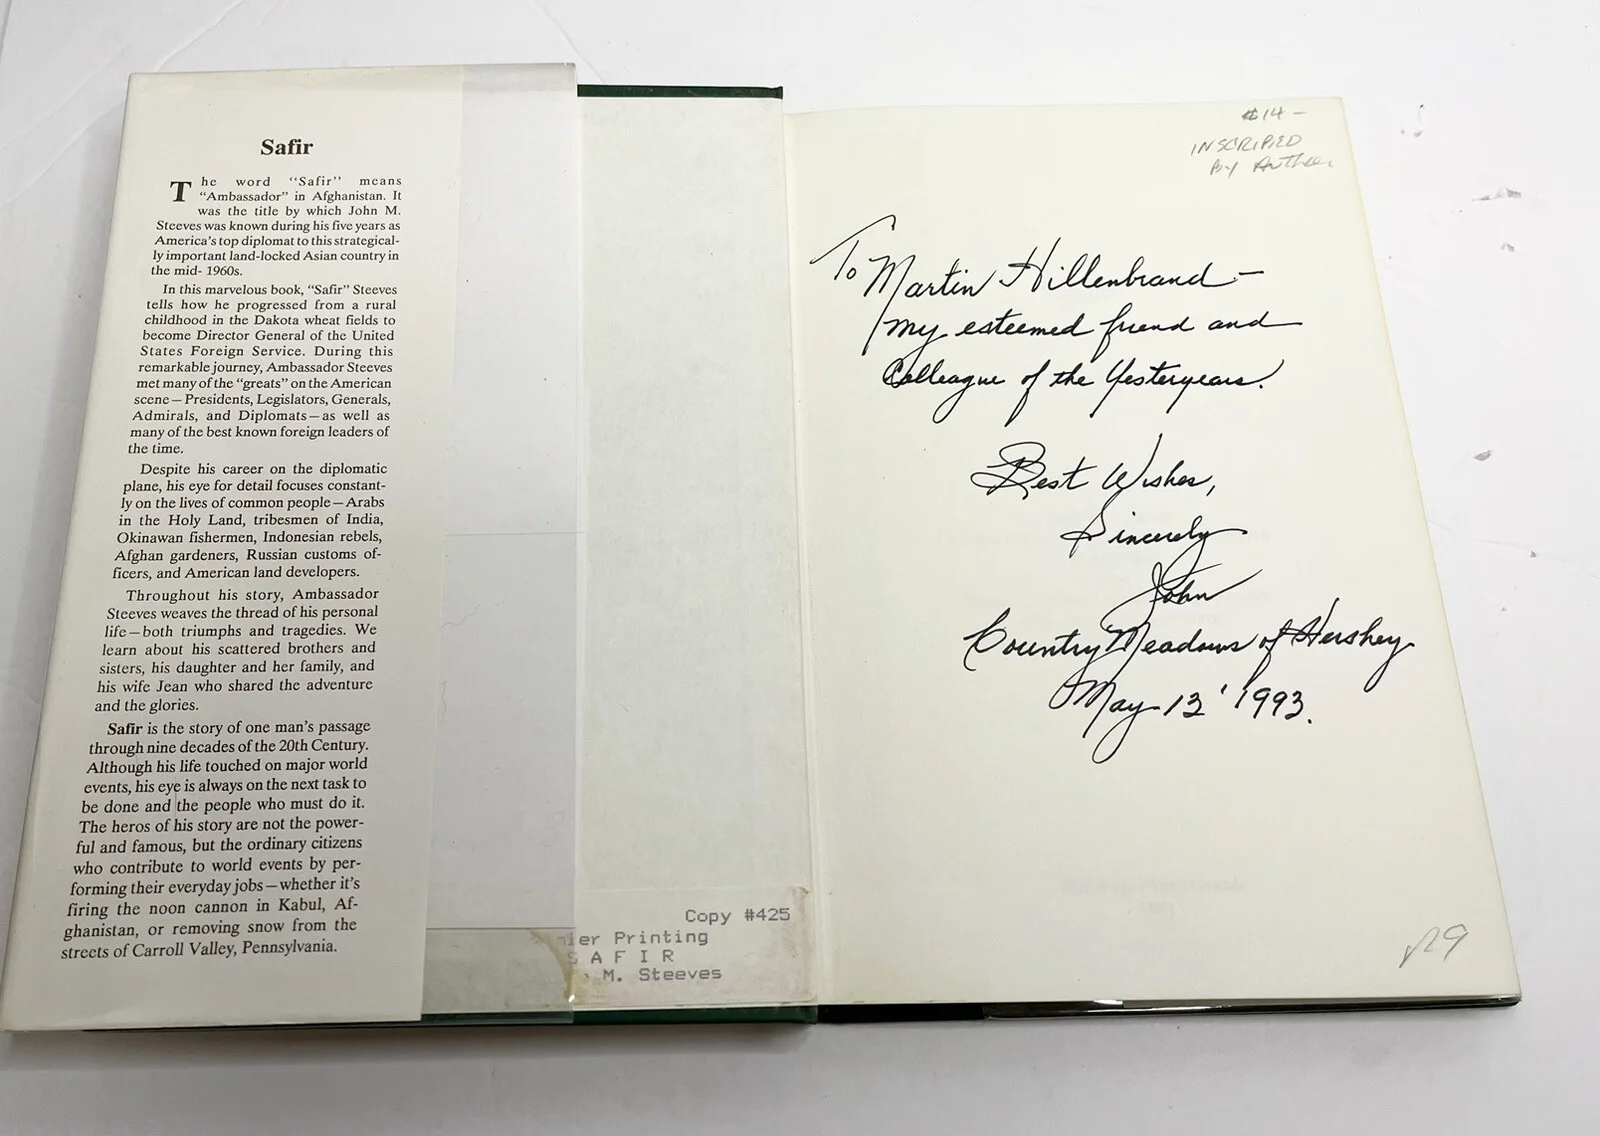 Safir
The word "Safir" means
"Ambassador" in Afghanistan. It
was the title by which John M.
Steeves was known during his five years as
America's top diplomat to this strategical-
ly important land-locked Asian country in
the mid- 1960s.
In this marvelous book, "Safir" Steeves
tells how he progressed from a rural
childhood in the Dakota wheat fields to
become Director General of the United
States Foreign Service. During this
remarkable journey, Ambassador Steeves
met many of the "greats" on the American
scene—Presidents, Legislators, Generals,
Admirals, and Diplomats—as well as
many of the best known foreign leaders of
the time.
Despite his career on the diplomatic
plane, his eye for detail focuses constant-
ly on the lives of common people—Arabs
in the Holy Land, tribesmen of India,
Okinawan fishermen, Indonesian rebels,
Afghan gardeners, Russian customs of-
ficers, and American land developers.
Throughout his story, Ambassador
Steeves weaves the thread of his personal
life—both triumphs and tragedies. We
learn about his scattered brothers and
sisters, his daughter and her family, and
his wife Jean who shared the adventure
and the glories.
Safir is the story of one man's passage
through nine decades of the 20th Century.
Although his life touched on major world
events, his eye is always on the next task to
be done and the people who must do it.
The heros of his story are not the power-
ful and famous, but the ordinary citizens
who contribute to world events by per-
forming their everyday jobs—whether it's
firing the noon cannon in Kabul, Af-
ghanistan, or removing snow from the
streets of Carroll Valley, Pennsylvania.
Copy #425
ier Printing
SAFIR
M. Steeves
$14-
INSCRIBED
By Author
To Martin Hillenbrand—
my esteemed friend and
Colleague of the Yesteryears.
Best Wishes,
Sincerely
John
Country Meadows of Hershey
May 13' 1993.